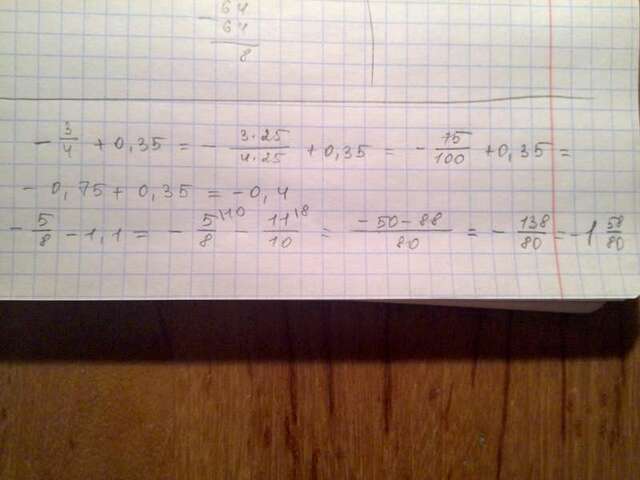 64
64
8
- 3/4 + 0,35 = - 3·25/4·25 + 0,35 = - 75/100 + 0,35 =
- 0,75 + 0,35 = - 0,4
- 5/8 - 1,1 = - 5\10/8 - 11\8/10 = -50-88/80 = - 138/80 = -1 58/80